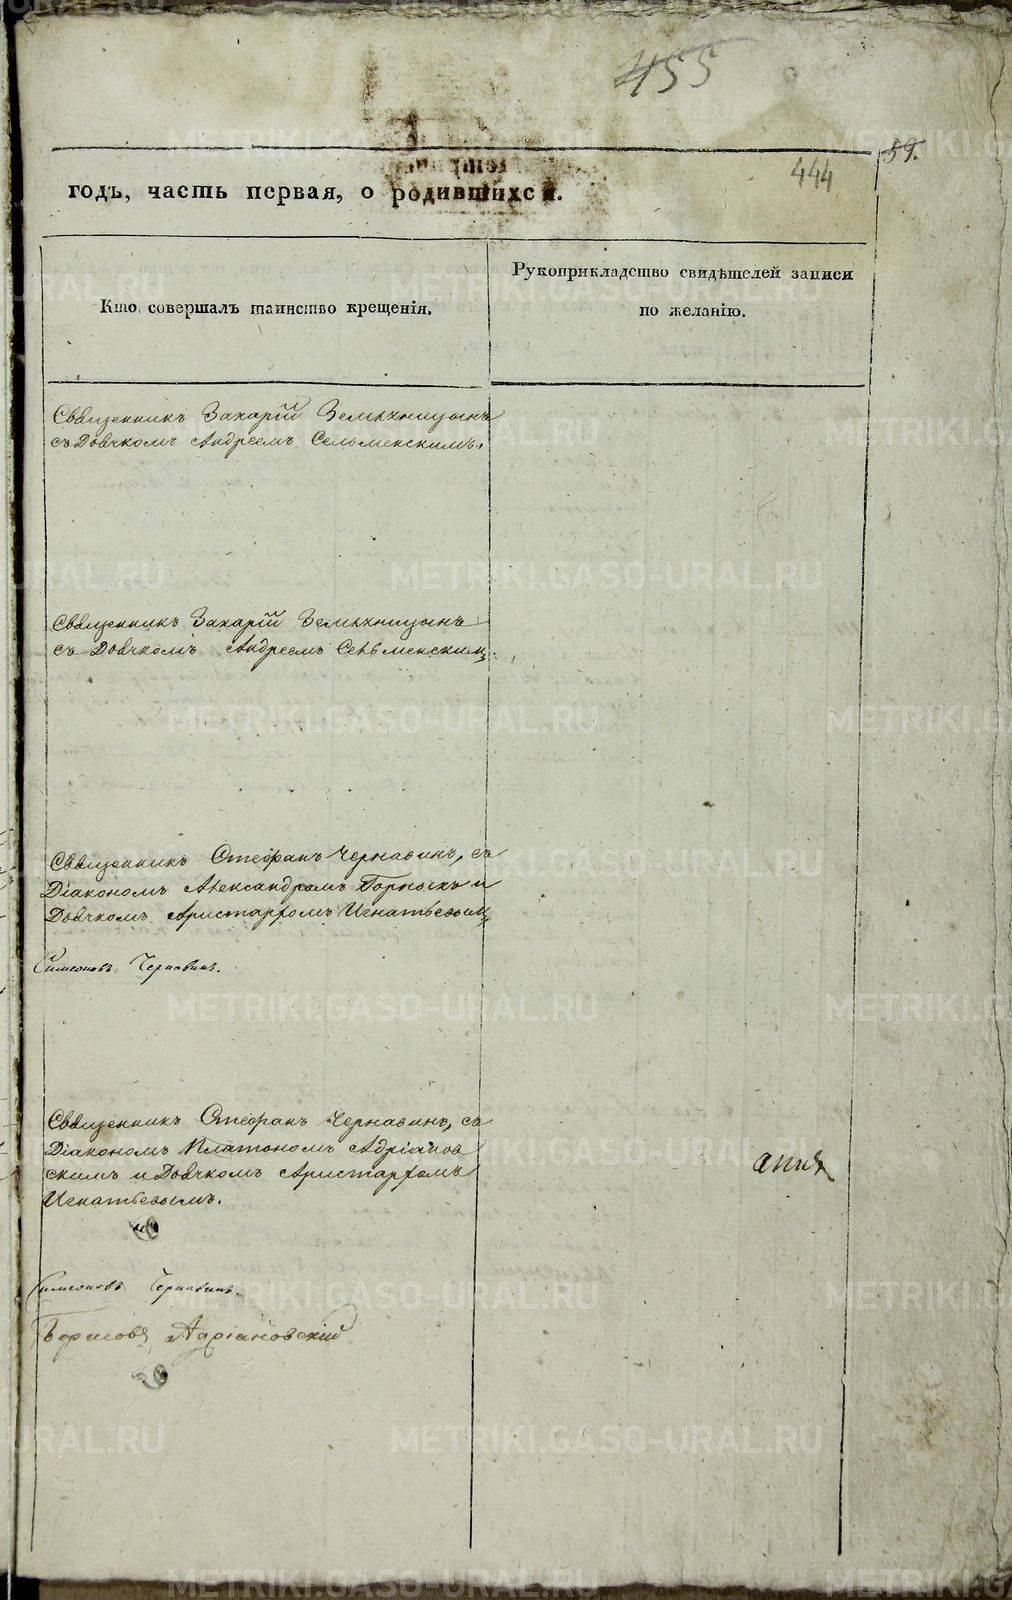 455
59.
444
годъ, часть первая, о родившихся.
Кто совершалъ таинство крещенія.
Рукоприкладство свидѣтелей записи
по желанію.
Священникъ Захарій Земляницынъ
съ Дьячкомъ Андреемъ Сельменскимъ.
Священникъ Захарій Земляницынъ
съ Дьячкомъ Андреемъ Сельменскимъ
Священникъ Стефанъ Чернавинъ, съ
Діакономъ Александромъ и
Дьячкомъ Аристархомъ Игнатьевымъ
Симеоновъ Чернавинъ.
Священникъ Стефанъ Чернавинъ, съ
Діакономъ Платономъ Адріанов
скимъ и Дьячкомъ Аристархомъ
Игнатьевымъ.
Симеоновъ Чернавинъ.
Борисовъ Адріановскій
METRIKI.GASO-URAL.RU